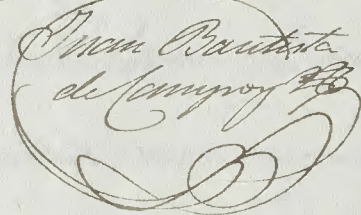 Juan Bautista
de Campoy